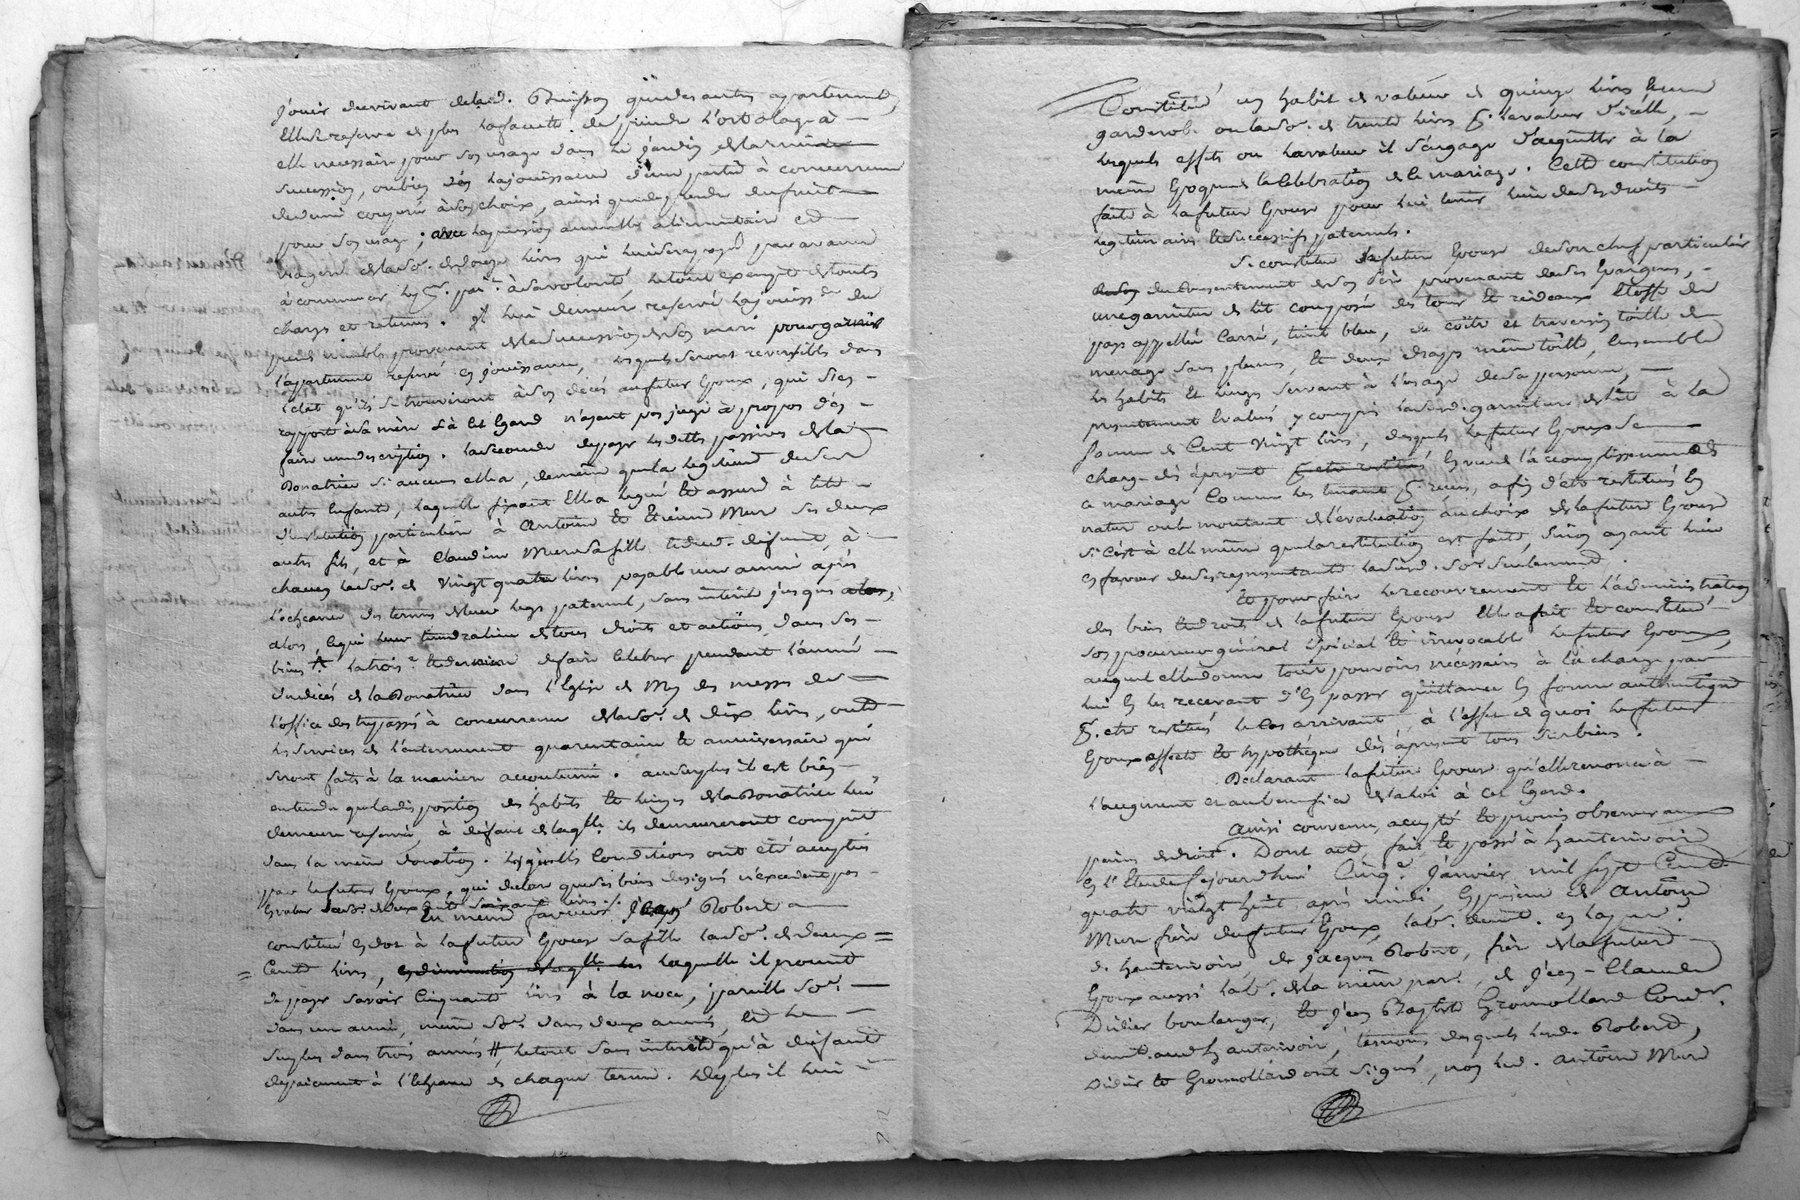 jouir du vivant de lad. Buisson qui des autres apartement,
elle se reserve de plus la faculté de prendre l'ortolage à
elle necessaire pour son usage dans le jardin de la même
succession, ou bien d'en la jouissance d'une partie à concurrence
d'une coupée à son choix, ainsi que de prendre du fruit
pour son usage; avec la pension annuelle alimentaire et
viagere de la so. de douze livres qui lui sera payée par avance
à commencer à sa volonté, le tout exempt de toutes
charges et retenues. Il lui demeure reservé la jouissce du
peu de meuble provenant de la succession de son mari pour garnir
l'apartement reservé en jouissance, lesquels seront reversibles dans
l'etat qu'ils se trouveront à son décés au futur Epoux, qui s'en
rapporte à sa mère & à cet Egard n'ayant pas jugé à propos d'en
faire une description. La seconde de payer les dettes passives de la
Donatrice si aucunes elle a, de même que la legitime de ses
autres Enfants, laquelle fixant Elle a legué et assuré à titre
d'institution particulière à Antoine et Etienne Mure ses deux
autres fils, et à Claudine Mure sa fille et dud. défunt, à
chacun la so. de vingt quatre livres payable une année après
l'echeance des termes de leur legs paternel, sans intérêt jusques alors,
alors, ce qui leur tiendra lieu de tous droits et actions dans ses
biens # la trois.e et derniere de faire celebrer pendant l'année
du décés de la Donatrice dans l'Eglise de My des messes de
l'office des trepassés à concurrence de la so. de dix livres, outre
les services de l'enterrement quarantaine et anniversaire qui
seront faits à la maniere accoutumée. au surplus il est bien
entendu que la disposition des habits et linges de la Donatrice lui
demeure reservée à défaut de laqlle. ils demeureront compris
dans la même donation. lesquelles Conditions ont été acceptées
par le futur Epoux, qui declare que les biens designés n'excedent pas
la valeur de deux cent soixante livres.
En même faveur. Jacques Robert
constitue en dot à la future Epouse sa fille la so. de deux =
Cents livres, laquelle il promet
de payer savoir Cinquante livres à la noce, pareille So.
dans un année, même So. dans deux années, et le
surplus dans trois années #, le tout sans interêt qu'à défaut
de paiement à l'Echeance de chaque terme. De plus il lui
Constitue un habit de valeur de quinze livres et une
garderobe ou la so. de trente livres p. la valeur d'icelle,
lesquels effets ou la valeur il s'engage d'acquitter à la
même Epoque de la Celebration de la mariage. Cette constitution
faite à la future Epouse pour lui tenir lieu de ses droits
legitimaires et successifs paternels.
Se constitue la future Epouse de son chef particulier
du Consentement de son Père provenant de ses Epargnes,
une garniture de lit composée des tour et rideaux Etoffe du
pays appellée Carré, teint bleu, de coîte et traversin toille de
menage sans plumes, et deux draps même toille, Ensemble
les habits et linges servant à l'usage de sa personne,
presentement Evalués y compris lad. garniture de lit à la
somme de Cent vingt livres, desquels le futur Epoux se
charge dès àpresent En vue de l'accomplissement de
ce mariage Comme les tenant p. recus, afin d'etre restitués En
nature ou le montant de l'evaluation au choix de la future Epouse
si c'est à elle même que la restitution est faite, sinon ayant lieu
en faveur de ses representants lad. So.e seulement.
Et pour faire le recouvrement et l'administration
des biens et droits de la future Epouse Elle a fait et constitué
son procureur général spécial et irrevocable le futur Epoux,
auquel elle donne tous pouvoirs nécessaires à la charge par
lui En les recevant d'En passer quittance En forme authentique
p. etre restitués le Cas arrivant, à l'effet de quoi le futur
Epoux affecte et hypothéque dès àpresent tous ses biens.
Declarant la future Epouse qu'elle renonce à
l'augment et au benefice de la loi à cet Egard.
Ainsi convenu, accepté et promis observer aux
peines de droit. Dont acte fait et passé à hauterivoire
En l'Etude Cejourdhui Cinq.e Janvier mil sept Cent
quatre vingt huit après midi, En presence de Antoine
Mure frère du futur Epoux, lab.r demt. en la par.
d. hauterivoire, de Jacques Robert, frère de la future
Epoux aussi lab.r de la même par., de Jean-Claude
Didier boulanger, et Jean Baptiste Gromollard Cordr.
demt. aud. hauterivoire, témoins desquels led. Robert,
Didier et Gromollard ont signé, non led. antoine Mure